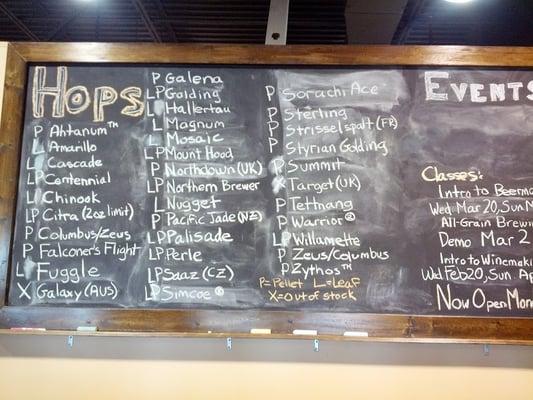 Hops
P Ahtanum™
L Amarillo
L Cascade
LP Centennial
L Chinook
LP Citra (2oz limit)
P Columbus/Zeus
P Falconer's Flight
L Fuggle
X Galaxy (AUS)
P Galena
LP Golding
L Hallertau
L Magnum
L Mosaic
LP Mount Hood
P Northdown (UK)
LP Northern Brewer
L Nugget
P Pacific Jade (NZ)
LP Palisade
LP Perle
LP Saaz (CZ)
LP Simcoe®
P Sorachi Ace
P Sterling
P Strisselspalt (FR)
P Styrian Golding
P Summit
X Target (UK)
P Tettnang
P Warrior®
LP Willamette
P Zeus/Columbus
P Zythos™
P=Pellet L=Leaf
X=Out of stock
Events
Classes:
Intro to Beerma
Wed Mar 20, Sun M
All-Grain Brewin
Demo Mar 2
Intro to Winemak
Wed Feb 20, Sun. Ap
Now Open Mon